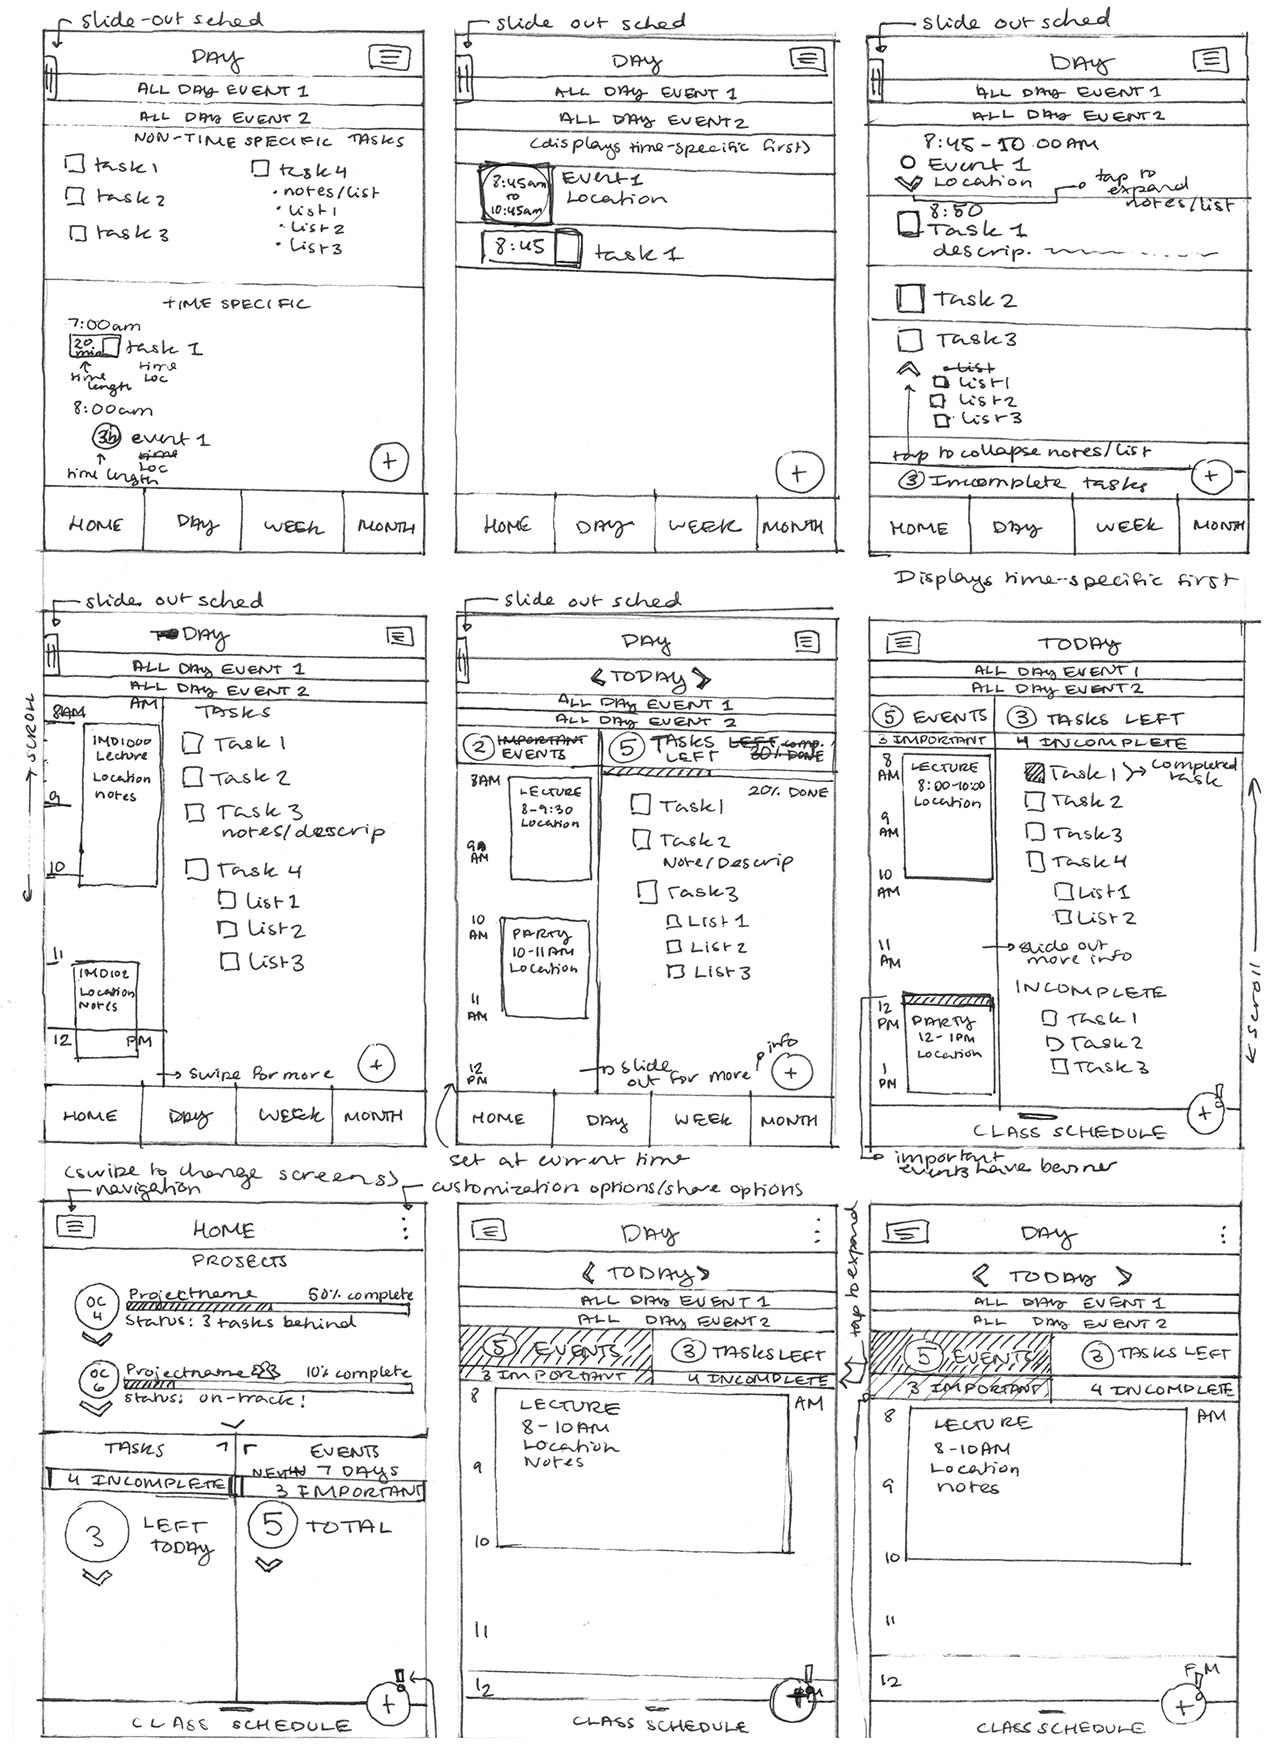 slide-out sched
DAY
ALL DAY EVENT 1
ALL DAY EVENT 2
NON-TIME SPECIFIC TASKS
task 1
task 2
task 3
task 4
• notes/list
• list 1
• list 2
• list 3
TIME SPECIFIC
7:00am
20 min
task 1
time length
time
LOC
8:00am
3h
event 1
time
LOC
time length
+
HOME
DAY
WEEK
MONTH
slide out sched
DAY
ALL DAY EVENT 1
ALL DAY EVENT 2
(displays time-specific first)
8:45am
to
10:45am
Event 1
Location
8:45
task 1
+
HOME
DAY
WEEK
MONTH
slide out sched
DAY
ALL DAY EVENT 1
ALL DAY EVENT 2
8:45-10:00AM
Event 1
Location
tap to
expand
notes/list
8:50
Task 1
descrip.
Task 2
Task 3
list
list 1
list 2
list 3
tap to collapse notes/list
3 Incomplete tasks
+
HOME
DAY
WEEK
MONTH
Displays time-specific first
slide out sched
DAY
ALL DAY EVENT 1
ALL DAY EVENT 2
AM
SCROLL
8AM
9
10
11
12
PM
IMD1000
Lecture
Location
notes
IMD102
Location
Notes
TASKS
Task 1
Task 2
Task 3
notes/descrip
Task 4
List 1
List 2
List 3
swipe for more
+
HOME
DAY
WEEK
MONTH
(swipe to change screens)
slide out sched
DAY
< TODAY >
ALL DAY EVENT 1
ALL DAY EVENT 2
2 IMPORTANT
EVENTS
5 TASKS LEFT comp.
LEFT 80% DONE
20% DONE
8AM
9
AM
10
AM
11
AM
12
PM
LECTURE
8-9:30
Location
PARTY
10-11AM
Location
Task 1
Task 2
Note/Descrip
Task 3
List 1
List 2
List 3
slide
out for more info
+
HOME
DAY
WEEK
MONTH
set at current time
TODAY
ALL DAY EVENT 1
ALL DAY EVENT 2
5 EVENTS
3 TASKS LEFT
3 IMPORTANT
4 INCOMPLETE
8
AM
9
AM
10
AM
11
AM
12
PM
1
PM
LECTURE
8:00-10:00
Location
PARTY
12-1PM
Location
Task 1
completed
task
Task 2
Task 3
Task 4
List 1
List 2
slide out
more info
INCOMPLETE
Task 1
Task 2
Task 3
scroll
+
CLASS SCHEDULE
important
events have banner
navigation
customization options/share options
HOME
PROJECTS
OC
4
Projectname
50% complete
Status: 3 tasks behind
OC
6
Projectname
10% complete
Status: on-track!
TASKS
4 INCOMPLETE
3
LEFT
TODAY
EVENTS
7 DAYS
3 IMPORTANT
5 TOTAL
+
CLASS SCHEDULE
DAY
< TODAY >
ALL DAY EVENT 1
ALL DAY EVENT 2
5 EVENTS
3 TASKS LEFT
3 IMPORTANT
4 INCOMPLETE
8
9
10
11
12
AM
LECTURE
8-10AM
Location
Notes
+
CLASS SCHEDULE
tap to expand
DAY
< TODAY >
ALL DAY EVENT 1
ALL DAY EVENT 2
5 EVENTS
3 TASKS LEFT
3 IMPORTANT
4 INCOMPLETE
8
9
10
11
12
AM
LECTURE
8-10AM
Location
notes
+
CLASS SCHEDULE